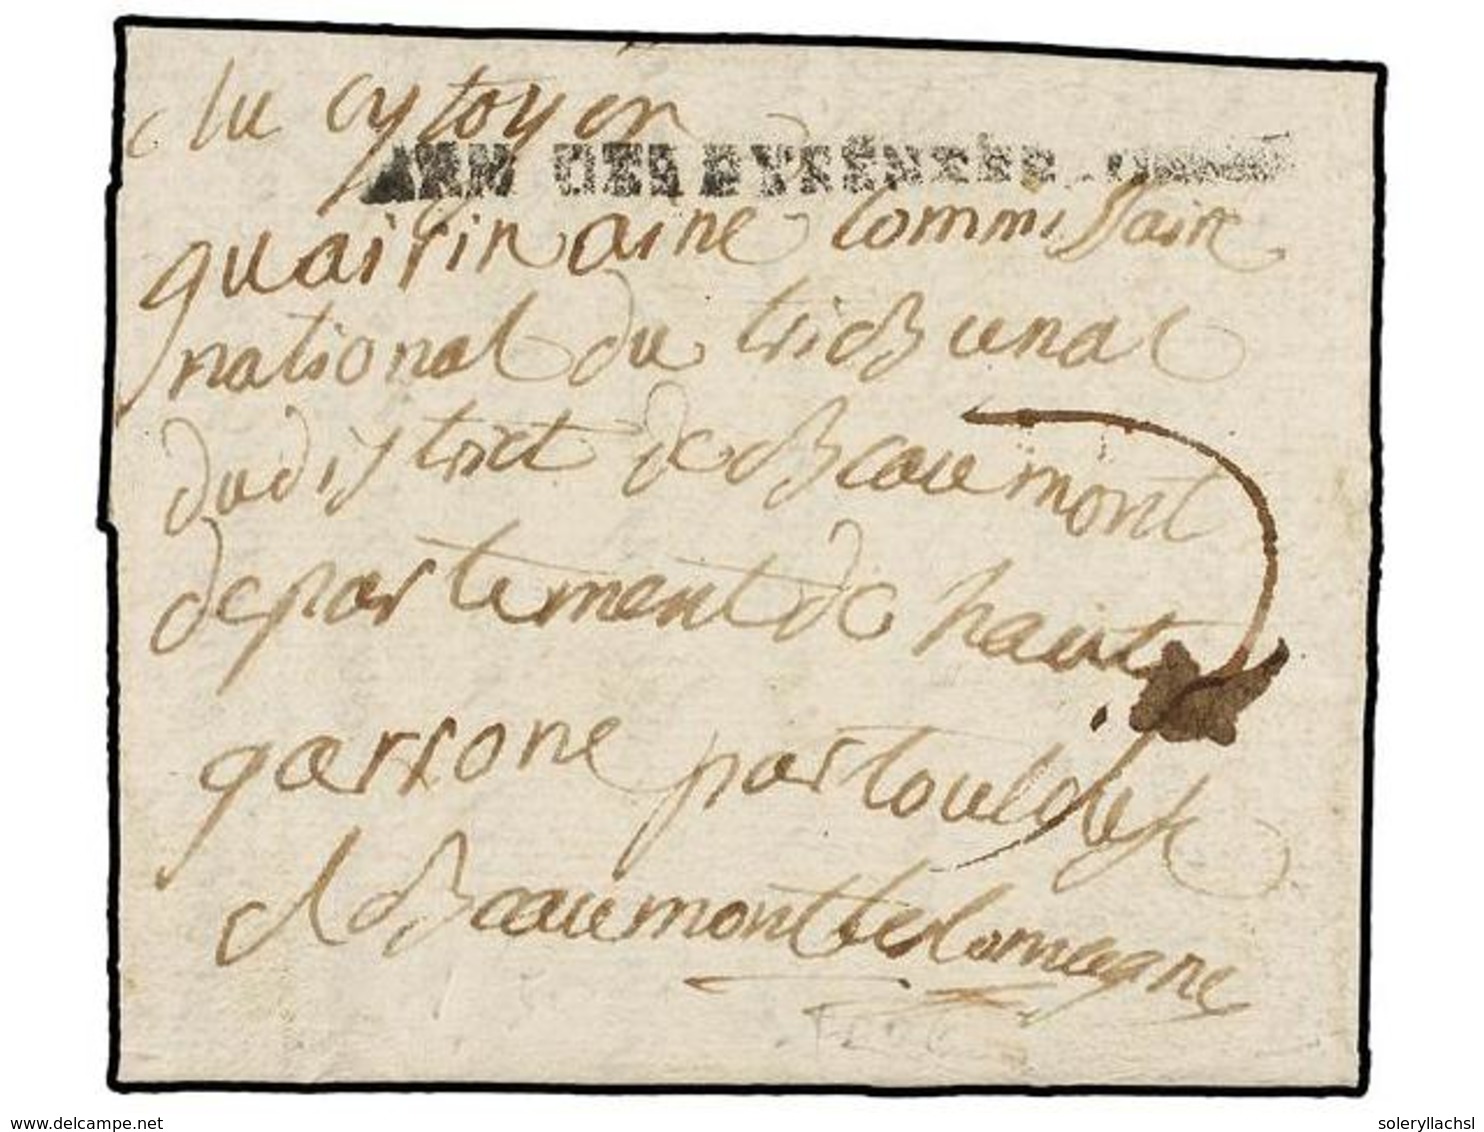 Au cytoyen
ARM DES PYRENEES
aine commissaire
national du tribunal
du dystrict de Beaumont
departement de haute
garrone par toulouse
A Beaumont de lomagne
delcampe.net
soleryllachsl